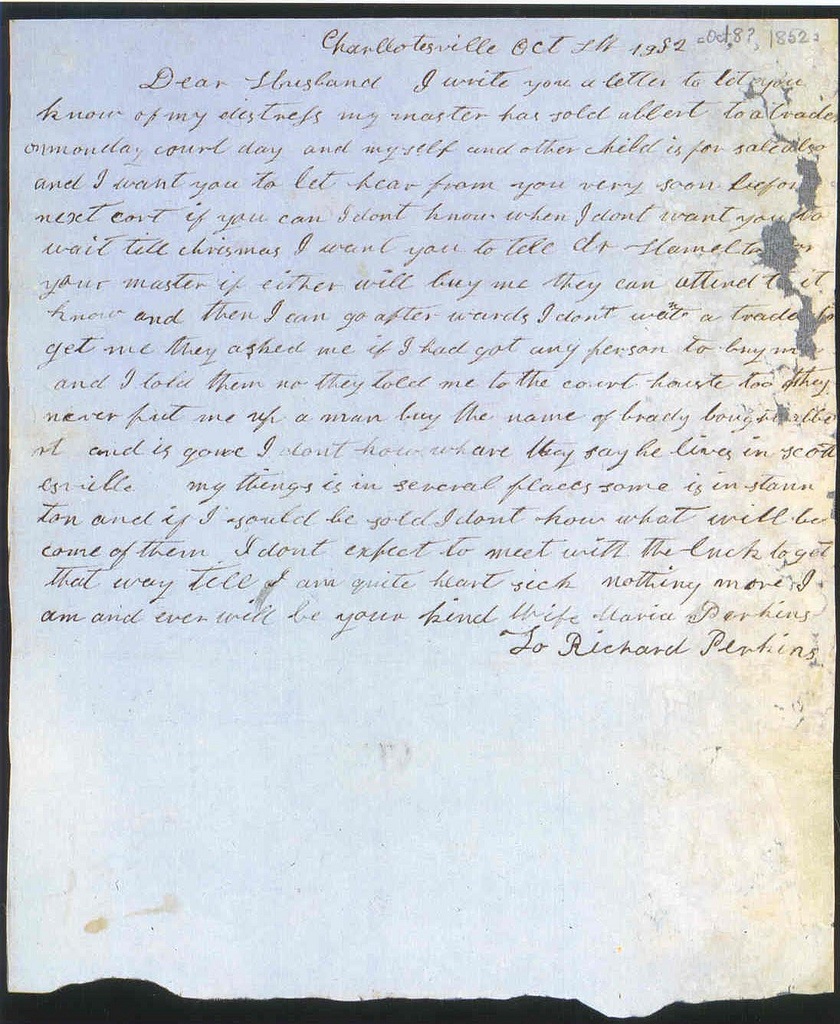 Charllotesville Oct 8th 1852 =Oct. 8?, 1852=
Dear Husband I write you a letter to let you
know of my distress my master has sold albert to a trader
on monday court day and myself and other child is for sale also
and I want you to let hear from you very soon before
next cort if you can I dont know when I dont want you to
wait till chrismas I want you to tell dr Hamelton or
your master if either will buy me they can attend to it
know and then I can go after wards I dont want a trader to
get me they asked me if I had got any person to buy me
and I told them no they told me to the court houste too they
never put me up a man buy the name of brady bought albe
rt and is gone I dont know whare they say he lives in scott
esville my things is in several places some is in staun
ton and if I sould be sold I dont know what will be
come of them I dont expect to meet with the luck to get
that way till I am quite heart sick nothing more I
am and ever will be your kind Wife Maria Perkins
To Richard Perkins